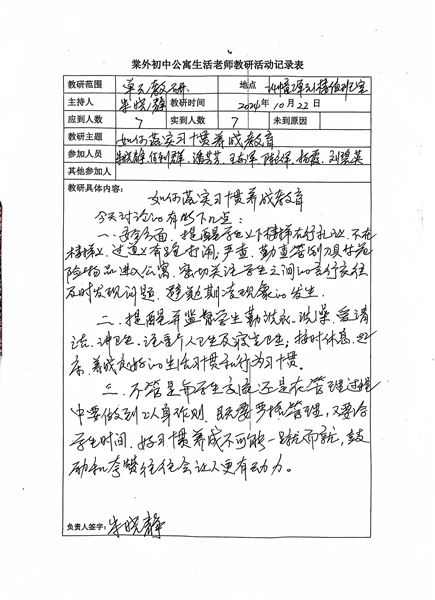 棠外初中公寓生活老师教研活动记录表
教研范围 单元教研 地点 值班室
主持人 朱晓静 教研时间 2024年10月22日
应到人数 7 实到人数 7 未到原因
教研主题 如何落实习惯养成教育
参加人员 朱晓静
其他参加人
教研具体内容:
如何落实习惯养成教育
今天讨论的有以下几点:
一、安全方面,提醒学生上下楼梯右行礼让,不在
楼梯上、过道上追逐打闹,严查、勤查管制刀具等危
险物品进入公寓,密切关注学生之间的言行交往
及时发现问题,避免欺凌现象的发生。
二、提醒并监督学生勤洗衣、洗澡、
注重个人卫生及寝室卫生;按时休息、起
床,养成良好的生活习惯和行为习惯。
三、不管是和学生交流还是在管理过程
中要做到以身作则,既要严格管理,又要给
学生时间,好习惯养成不可能一蹴而就,鼓
励和夸赞往往会让人更有动力。
负责人签字:朱晓静